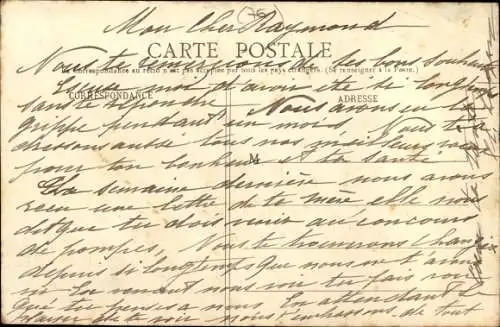 Mon Cher Raymond
CARTE POSTALE
Nous te remercions de tes bons souhaits
La correspondance au recto n'est pas acceptée par tous les pays étrangers. (Se renseigner à la Poste).
et avoir été si longtemps
CORRESPONDANCE
ADRESSE
sans te répondre Nous avons eu la
grippe pendant un mois, Nous t'a
dressons aussi tous nos meilleurs vœux
pour ton bonheur et ta santé
La semaine dernière nous avons
recu une lettre de ta mère elle nous
dit que tu dois venir au concours
de pompes, Nous te trouverons chan
depuis si longtemps que nous ne t'avons
vu En venant nous voir tu fais voir
que tu penses a nous En attendant le
plaisir de te voir nous t'embrassons de tout